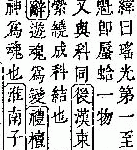 緯曰瑤光第一至
魁即蜃蛤一物
又與科同後漢東
縈繞成科結也
辭遊魂爲變禮檀
神爲魂也淮南子